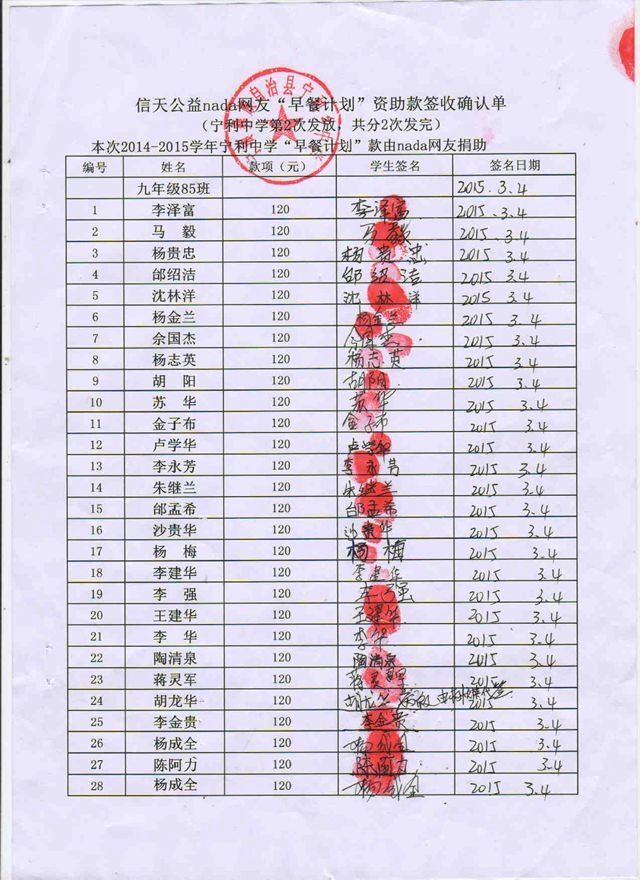 信天公益nada网友“早餐计划”资助款签收确认单
（宁利中学第2次发放，共分2次发完）
本次2014-2015学年宁利中学“早餐计划”款由nada网友捐助
编号 姓名 款项（元） 学生签名 签名日期
九年级85班 2015.3.4
1 李泽富 120 李泽富 2015.3.4
2 马 毅 120 马毅 2015.3.4
3 杨贵忠 120 杨贵忠 2015 3.4
4 邰绍洁 120 邰绍洁 2015 3.4
5 沈林洋 120 沈林洋 2015 3.4
6 杨金兰 120 杨金兰 2015 3.4
7 佘国杰 120 佘国杰 2015 3.4
8 杨志英 120 杨志英 2015 3.4
9 胡 阳 120 胡阳 2015 3.4
10 苏 华 120 苏华 2015 3.4
11 金子布 120 金子布 2015 3.4
12 卢学华 120 卢学华 2015 3.4
13 李永芳 120 李永芳 2015 3.4
14 朱继兰 120 朱继兰 2015 3.4
15 邰孟希 120 邰孟希 2015 3.4
16 沙贵华 120 沙贵华 2015 3.4
17 杨 梅 120 杨梅 2015 3.4
18 李建华 120 李建华 2015 3.4
19 李 强 120 强 2015 3.4
20 王建华 120 王建华 2015 3.4
21 李 华 120 李华 2015 3.4
22 陶清泉 120 陶清泉 2015 3.4
23 蒋灵军 120 蒋灵军 2015 3.4
24 胡龙华 120 胡龙华 2015 3.4
25 李金贵 120 李金贵 2015 3.4
26 杨成全 120 杨成全 2015 3.4
27 陈阿力 120 陈阿力 2015 3.4
28 杨成全 120 杨成全 2015 3.4